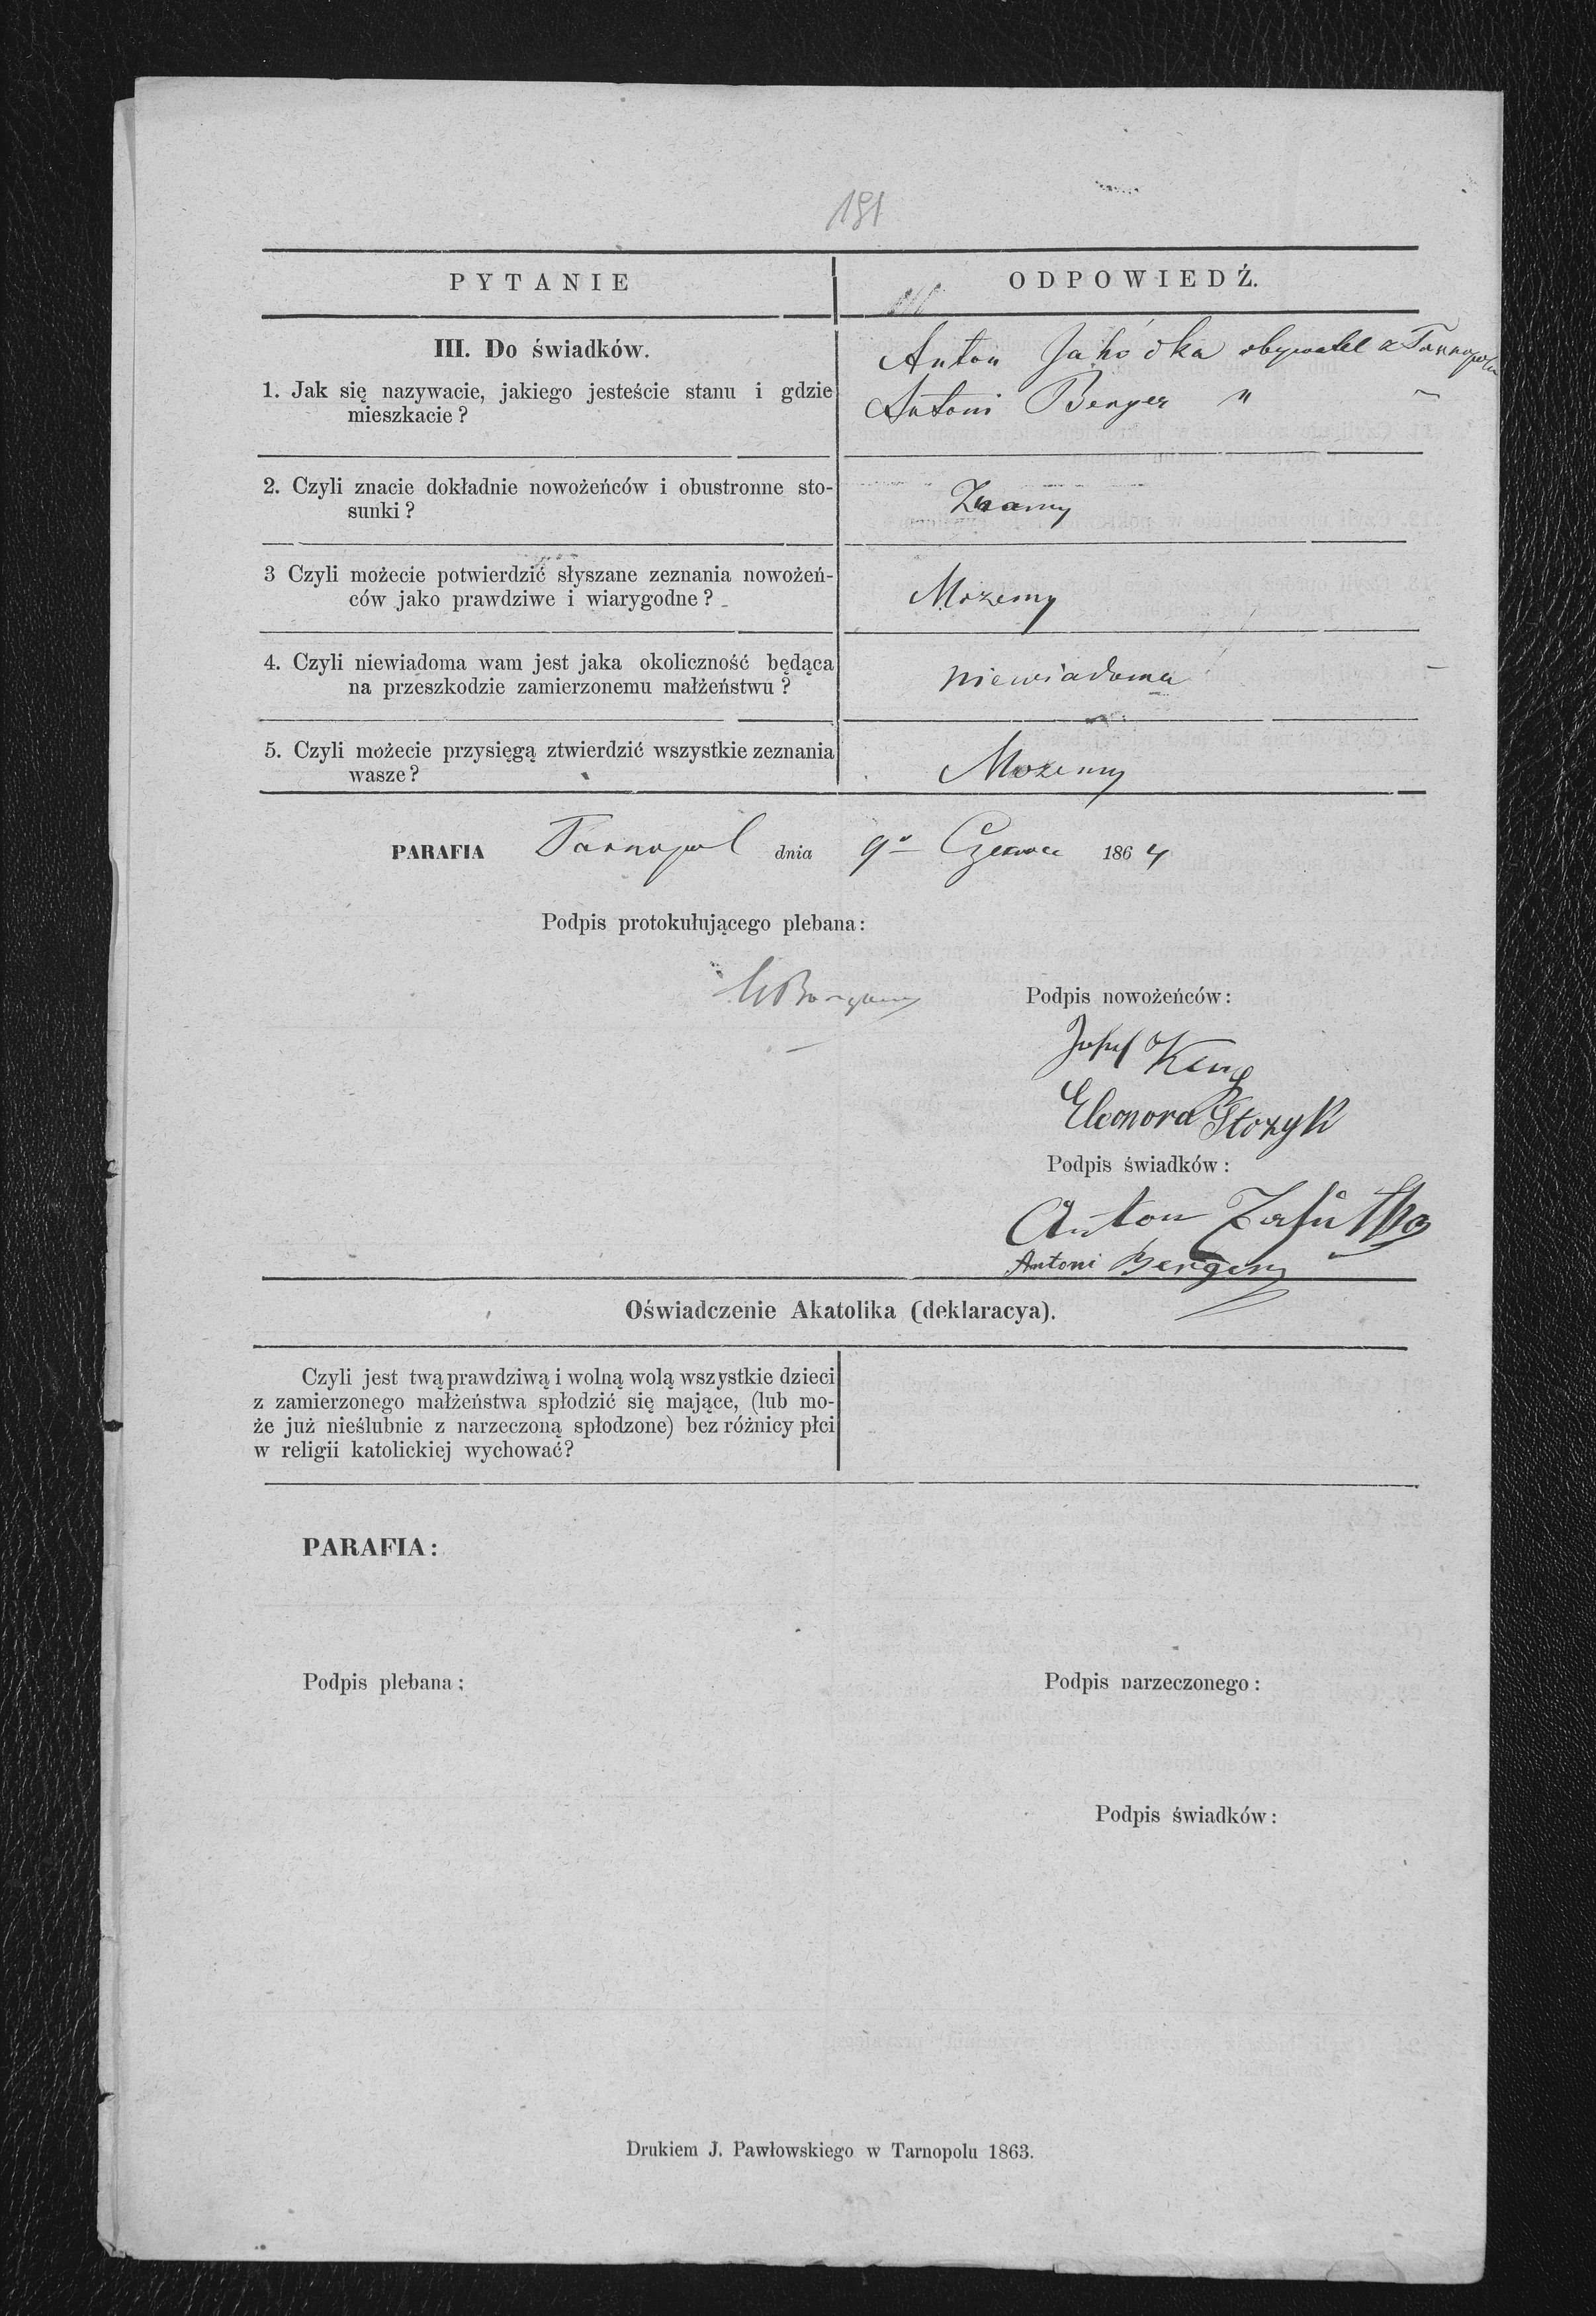 191
PYTANIE
ODPOWIEDŹ.
III. Do świadków.
1. Jak się nazywacie, jakiego jesteście stanu i gdzie
mieszkacie?
Anton obywatel z Tarnopola
Antoni Berger " "
2. Czyli znacie dokładnie nowożeńców i obustronne sto-
sunki?
Znamy
3 Czyli możecie potwierdzić słyszane zeznania nowożeń-
ców jako prawdziwe i wiarygodne?
Mozemy
4. Czyli niewiadoma wam jest jaka okoliczność będąca
na przeszkodzie zamierzonemu małżeństwu?
niewiadoma
5. Czyli możecie przysięgą ztwierdzić wszystkie zeznania
wasze?
Mozemy
PARAFIA Tarnopol dnia 9go Czerwca 1864
Podpis protokułującego plebana:
Podpis nowożeńców:
Josef
Eleonora Stozyk
Podpis świadków:
Anton
Antoni Berger
Oświadczenie Akatolika (deklaracya).
Czyli jest twą prawdziwą i wolną wolą wszystkie dzieci
z zamierzonego małżeństwa spłodzić się mające, (lub mo-
że już nieślubnie z narzeczoną spłodzone) bez różnicy płci
w religii katolickiej wychować?
PARAFIA:
Podpis plebana:
Podpis narzeczonego:
Podpis świadków:
Drukiem J. Pawłowskiego w Tarnopolu 1863.